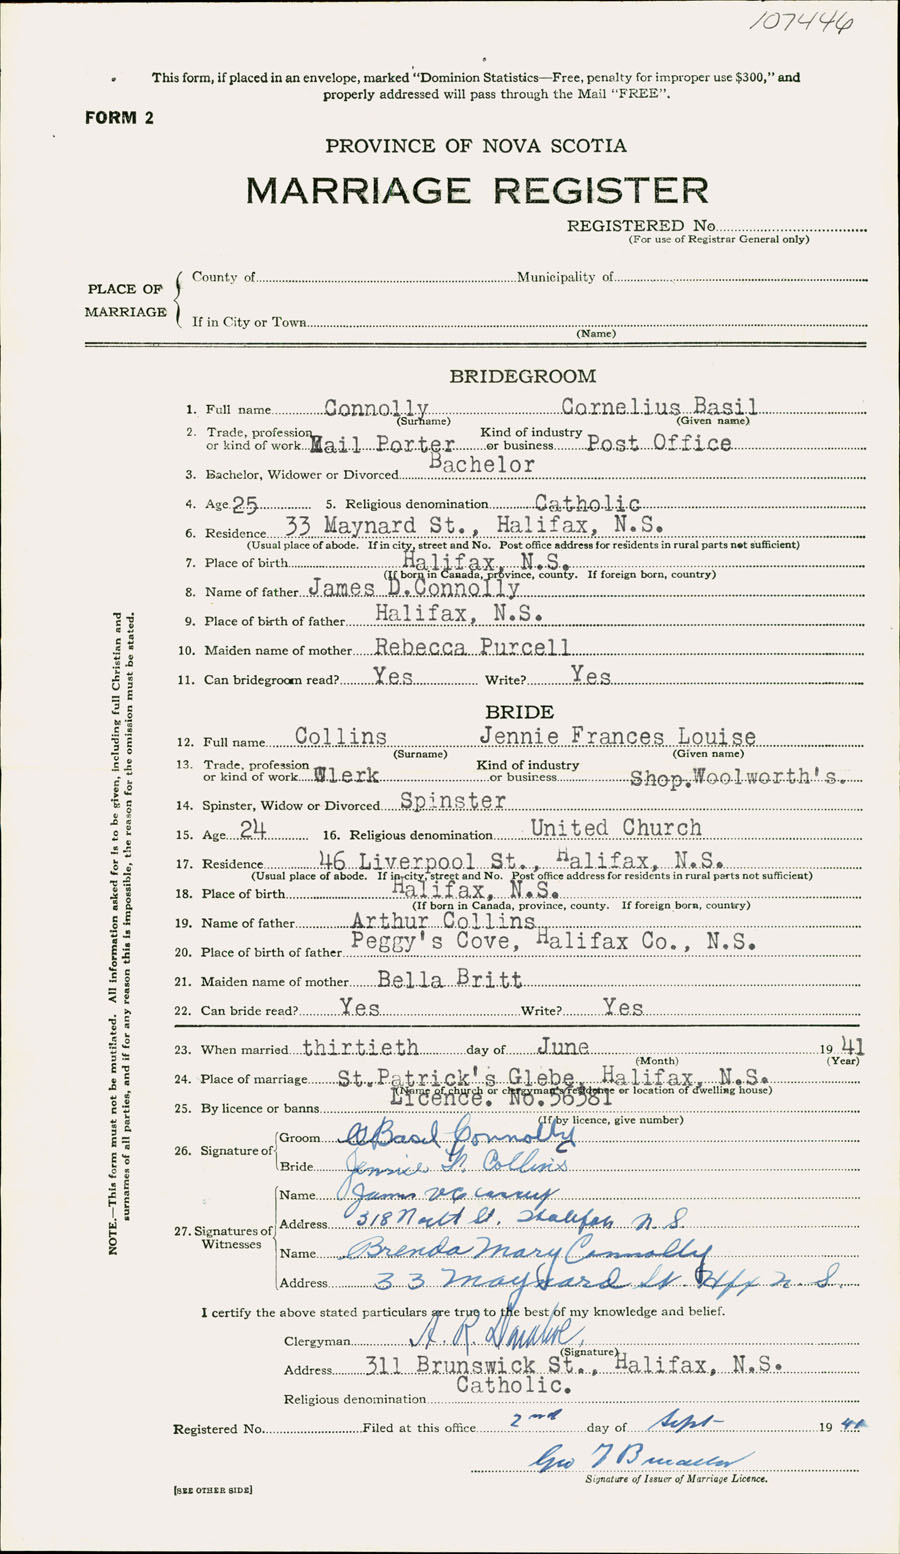 107446
This form, if placed in an envelope, marked "Dominion Statistics—Free, penalty for improper use $300," and
properly addressed will pass through the Mail "FREE".
FORM 2
PROVINCE OF NOVA SCOTIA
MARRIAGE REGISTER
REGISTERED No.
(For use of Registrar General only)
PLACE OF MARRIAGE
County of Municipality of
If in City or Town
(Name)
BRIDEGROOM
1. Full name Connolly Cornelius Basil
(Surname) (Given name)
2. Trade, profession or kind of work Mail Porter Kind of industry or business Post Office
3. Bachelor, Widower or Divorced Bachelor
4. Age 25 5. Religious denomination Catholic
6. Residence 33 Maynard St., Halifax, N.S.
(Usual place of abode. If in city, street and No. Post office address for residents in rural parts not sufficient)
7. Place of birth Halifax, N.S.
(If born in Canada, province, county. If foreign born, country)
8. Name of father James D.Connolly
9. Place of birth of father Halifax, N.S.
10. Maiden name of mother Rebecca Purcell
11. Can bridegroom read? Yes Write? Yes
BRIDE
12. Full name Collins Jennie Frances Louise
(Surname) (Given name)
13. Trade, profession or kind of work Clerk Kind of industry or business Shop.Woolworth's.
14. Spinster, Widow or Divorced Spinster
15. Age 24 16. Religious denomination United Church
17. Residence 46 Liverpool St., Halifax, N.S.
(Usual place of abode. If in city, street and No. Post office address for residents in rural parts not sufficient)
18. Place of birth Halifax, N.S.
(If born in Canada, province, county. If foreign born, country)
19. Name of father Arthur Collins
20. Place of birth of father Peggy's Cove, Halifax Co., N.S.
21. Maiden name of mother Bella Britt
22. Can bride read? Yes Write? Yes
23. When married thirtieth day of June 19 41
(Month) (Year)
24. Place of marriage St.Patrick's Glebe, Halifax, N.S.
(Name of church or clergyman's residence or location of dwelling house)
25. By licence or banns Licence. No.56381
(If by licence, give number)
26. Signature of
Groom C Basil Connolly
Bride Jennie F. Collins
27. Signatures of Witnesses
Name James
Address 318 North St. Halifax N.S.
Name Brenda Mary Connolly
Address 33 Maynard St Hfx N.S.
I certify the above stated particulars are true to the best of my knowledge and belief.
Clergyman A. R. Donahoe.
(Signature)
Address 311 Brunswick St., Halifax, N.S.
Religious denomination Catholic.
Registered No. Filed at this office 2nd day of Sept 19 41
Geo
Signature of Issuer of Marriage Licence.
[SEE OTHER SIDE]
NOTE.—This form must not be mutilated. All information asked for is to be given, including full Christian and
surnames of all parties, and if for any reason this is impossible, the reason for the omission must be stated.